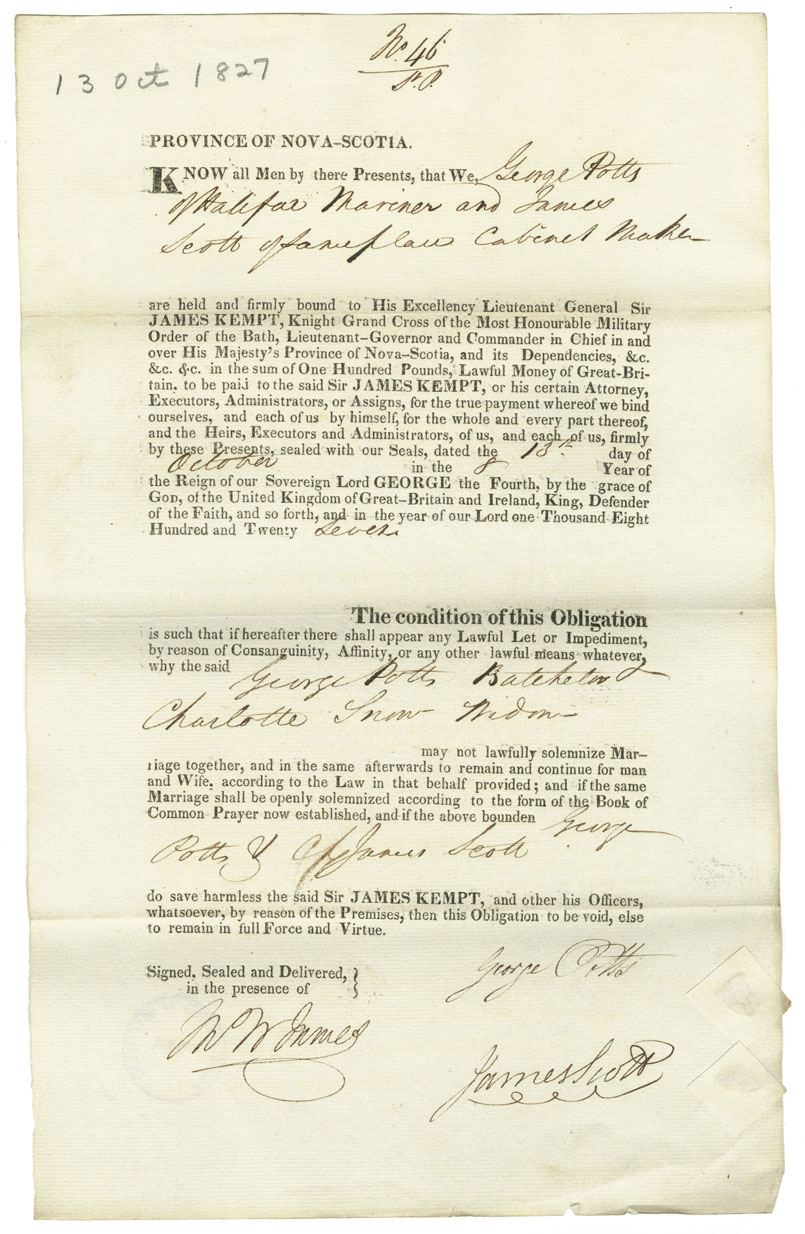 13 Oct 1827
No. 46
PROVINCE OF NOVA-SCOTIA.
KNOW all Men by there Presents, that We, George Potts
of Halifax Mariner and James
Scott of same place Cabinet Maker
are held and firmly bound to His Excellency Lieutenant General Sir
JAMES KEMPT, Knight Grand Cross of the Most Honourable Military
Order of the Bath, Lieutenant-Governor and Commander in Chief in and
over His Majesty's Province of Nova-Scotia, and its Dependencies, &c.
&c. &c. in the sum of One Hundred Pounds, Lawful Money of Great-Bri-
tain, to be paid to the said Sir JAMES KEMPT, or his certain Attorney,
Executors, Administrators, or Assigns, for the true payment whereof we bind
ourselves, and each of us by himself, for the whole and every part thereof,
and the Heirs, Executors and Administrators, of us, and each of us, firmly
by these Presents, sealed with our Seals, dated the 13th day of
October in the 8 Year of
the Reign of our Sovereign Lord GEORGE the Fourth, by the grace of
GOD, of the United Kingdom of Great-Britain and Ireland, King, Defender
of the Faith, and so forth, and in the year of our Lord one Thousand Eight
Hundred and Twenty Seven
The condition of this Obligation
is such that if hereafter there shall appear any Lawful Let or Impediment,
by reason of Consanguinity, Affinity, or any other lawful means whatever,
why the said George Potts Batchelor &
Charlotte Snow Widow
may not lawfully solemnize Mar-
riage together, and in the same afterwards to remain and continue for man
and Wife, according to the Law in that behalf provided; and if the same
Marriage shall be openly solemnized according to the form of the Book of
Common Prayer now established, and if the above bounden George
Potts & James Scott
do save harmless the said Sir JAMES KEMPT, and other his Officers,
whatsoever, by reason of the Premises, then this Obligation to be void, else
to remain in full Force and Virtue.
Signed, Sealed and Delivered,
in the presence of
George Potts
James
James Scott